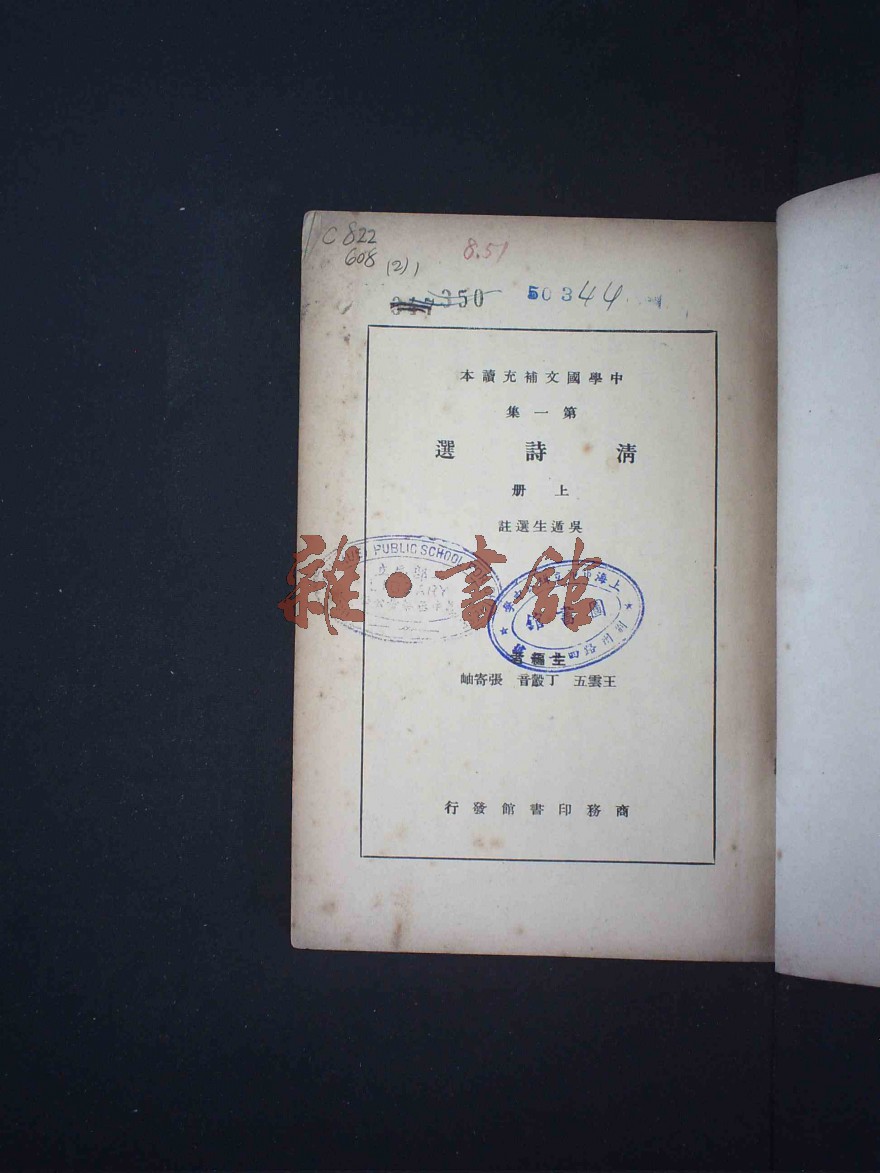 C 822
608 (2) 1
8.51
350
50344
中學國文補充讀本
第一集
清詩選
上册
吳遁生選註
PUBLIC SCHOOL
上海
圖書館
主編者
王雲五 丁瞉音 張寄岫
商務印書館發行
雜·書館